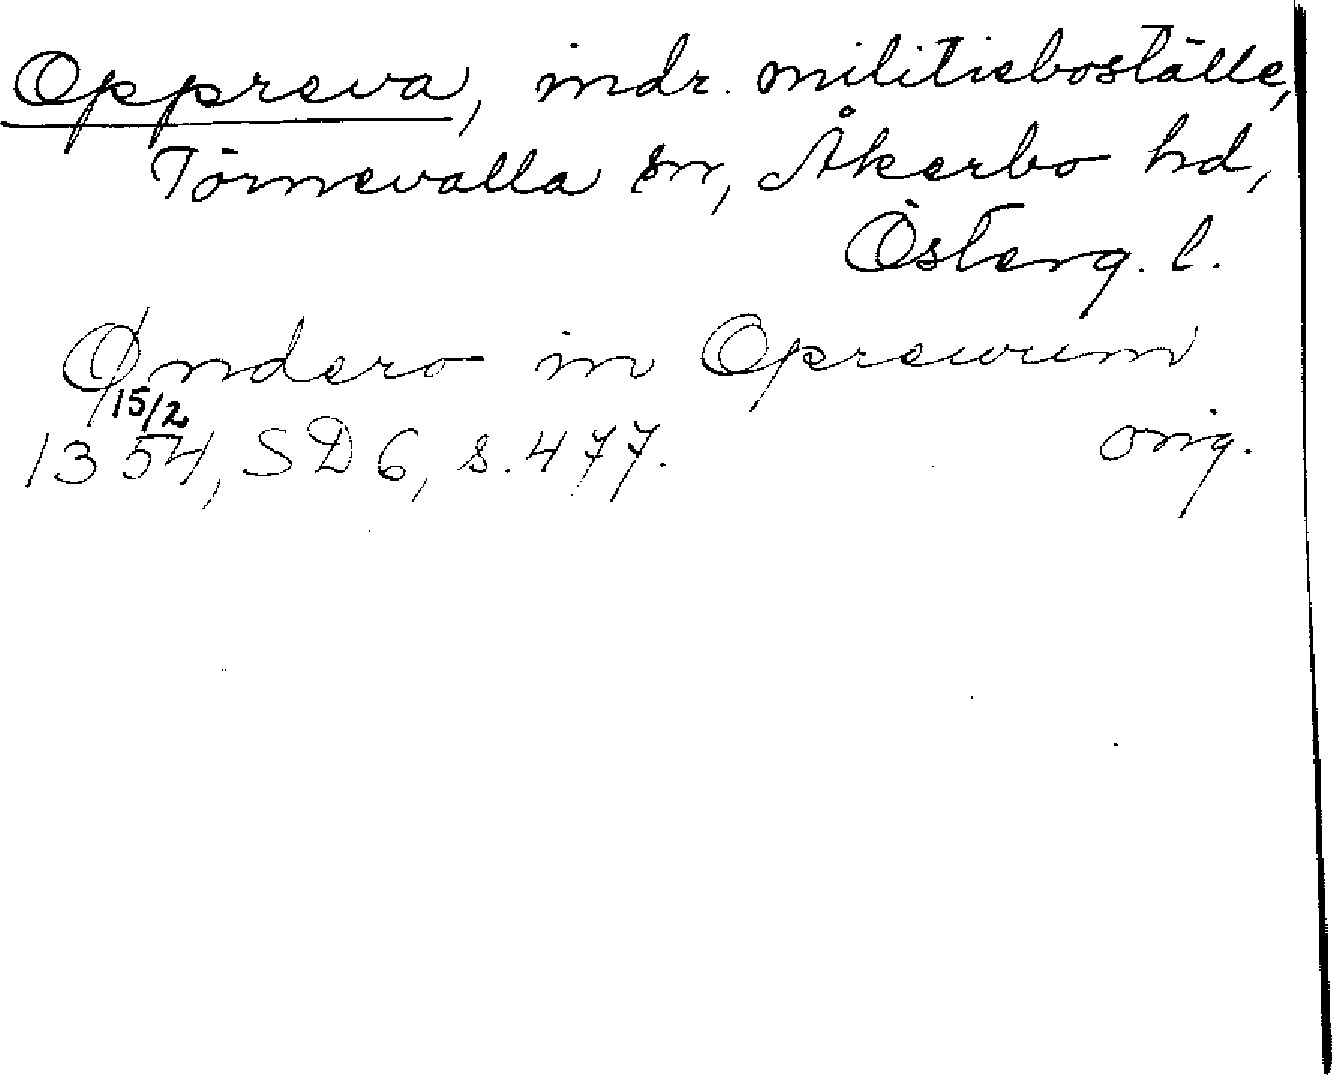 Oppreva, indr. militieboställe,
Törnevalla sn, Åkerbo hd,
Österg. l.
Øndero in Oprewum
15/2
1354, SD 6, s. 477. orig.